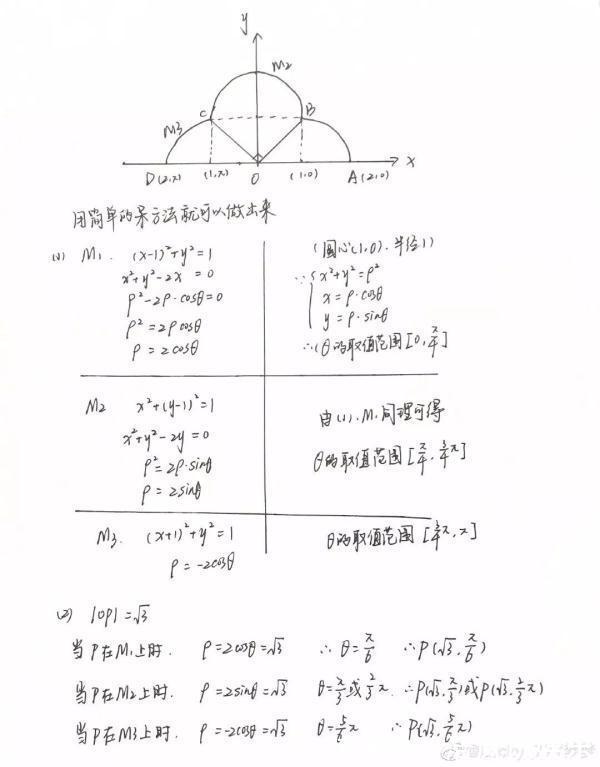 y
M2
C
B
M3
D(2,π)
(1,π)
O
(1,0)
A(2,0)
x
用简单的呆方法就可以做出来
(1) M1. (x-1)²+y²=1
x²+y²-2x=0
ρ²-2ρ·cosθ=0
ρ²=2ρcosθ
ρ=2cosθ
(圆心(1,0).半径1)
∵{x²+y²=ρ²
x=ρ·cosθ
y=ρ·sinθ
∴(θ的取值范围[0,π/4]
M2 x²+(y-1)²=1
x²+y²-2y=0
ρ²=2ρ·sinθ
ρ=2sinθ
由(1).M1同理可得
θ的取值范围[π/4,3/4π]
M3. (x+1)²+y²=1
ρ=-2cosθ
θ的取值范围[3/4π,π]
(2) |OP|=√3
当P在M1上时. ρ=2cosθ=√3 ∴θ=π/6 ∴P(√3,π/6)
当P在M2上时. ρ=2sinθ=√3 θ=π/3或2/3π ∴P(√3,π/3)或P(√3,2/3π)
当P在M3上时. ρ=-2cosθ=√3 θ=5/6π ∴P(√3,5/6π)